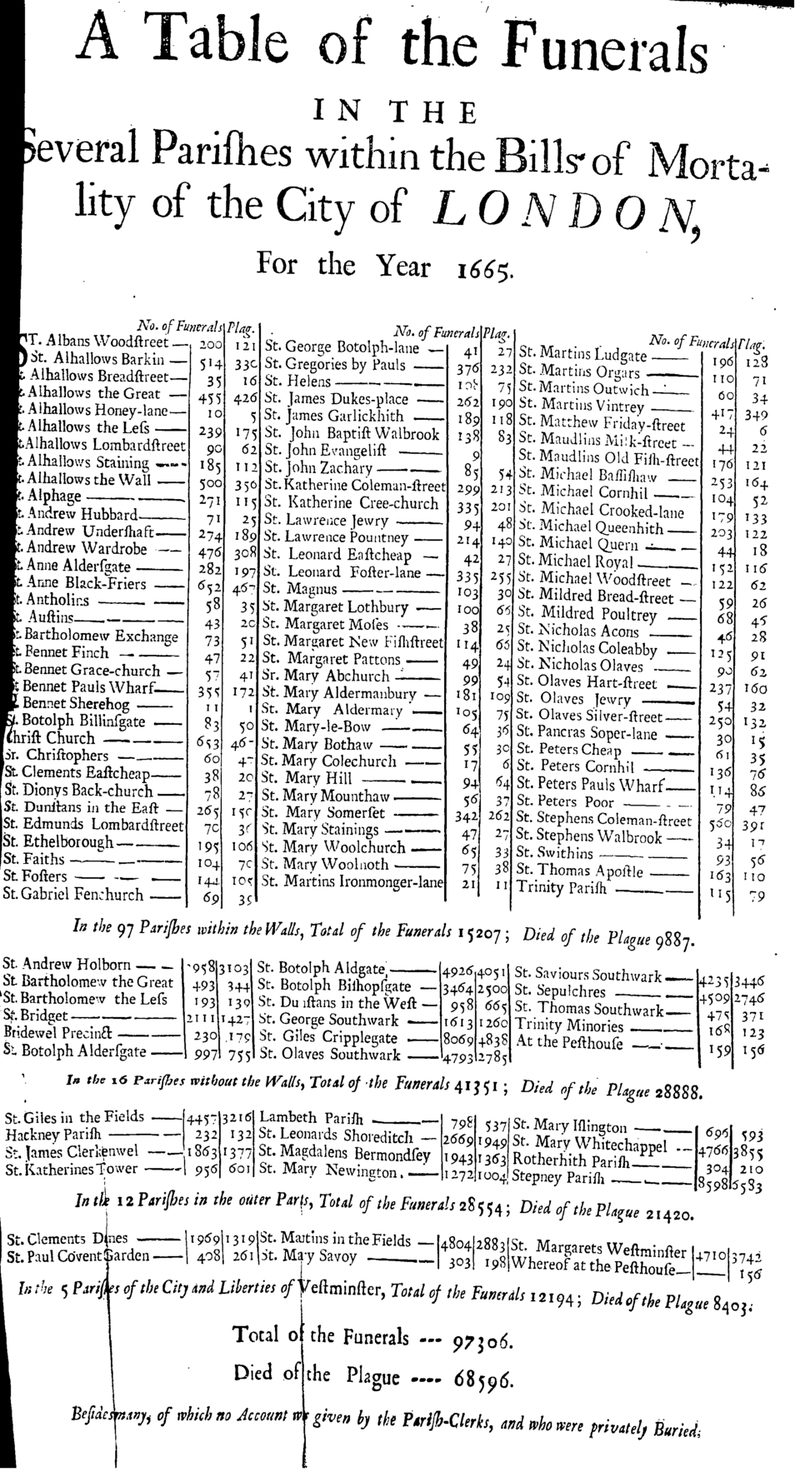 A Table of the Funerals
IN THE
Several Pariſhes within the Bills of Morta-
lity of the City of LONDON,
For the Year 1665.
No. of Funerals Plag.
ST. Albans Woodſtreet — 200 121
St. Alhallows Barkin — 514 330
St. Alhallows Breadſtreet— 35 16
St. Alhallows the Great — 455 426
St. Alhallows Honey-lane— 10 5
St. Alhallows the Leſs — 239 175
St. Alhallows Lombardſtreet 90 62
St. Alhallows Staining --- 185 112
St. Alhallows the Wall — 500 356
St. Alphage — 271 115
St. Andrew Hubbard— 71 25
St. Andrew Underſhaft— 274 189
St. Andrew Wardrobe — 476 308
St. Anne Alderſgate — 282 197
St. Anne Black-Friers — 652 467
St. Antholins — 58 35
St. Auſtins — 43 20
St. Bartholomew Exchange 73 51
St. Bennet Finch — 47 22
St. Bennet Grace-church — 57 41
St. Bennet Pauls Wharf— 355 172
St. Bennet Sherehog — 11 1
St. Botolph Billinſgate — 83 50
Chriſt Church — 653 467
St. Chriſtophers — 60 47
St. Clements Eaſtcheap— 38 20
St. Dionys Back-church — 78 27
St. Dunſtans in the Eaſt — 265 150
St. Edmunds Lombardſtreet 70 36
St. Ethelborough— 195 106
St. Faiths — 104 70
St. Foſters — 144 105
St. Gabriel Fenchurch — 69 39
No. of Funerals Plag.
St. George Botolph-lane — 41 27
St. Gregories by Pauls — 376 232
St. Helens — 108 75
St. James Dukes-place — 262 190
St. James Garlickhith — 189 118
St. John Baptiſt Walbrook 138 83
St. John Evangeliſt — 9
St. John Zachary — 85 54
St. Katherine Coleman-ſtreet 299 213
St. Katherine Cree-church 335 201
St. Lawrence Jewry — 94 48
St. Lawrence Pountney — 214 140
St. Leonard Eaſtcheap — 42 27
St. Leonard Foſter-lane — 335 255
St. Magnus — 103 30
St. Margaret Lothbury — 100 66
St. Margaret Moſes — 38 25
St. Margaret New Fiſhſtreet 114 66
St. Margaret Pattons — 49 24
St. Mary Abchurch — 99 54
St. Mary Aldermanbury — 181 109
St. Mary Aldermary — 105 75
St. Mary-le-Bow — 64 36
St. Mary Bothaw — 55 30
St. Mary Colechurch — 17 6
St. Mary Hill — 94 64
St. Mary Mounthaw — 56 37
St. Mary Somerſet — 342 262
St. Mary Stainings — 47 27
St. Mary Woolchurch — 65 33
St. Mary Woolnoth — 75 38
St. Martins Ironmonger-lane 21 11
No. of Funerals Plag.
St. Martins Ludgate — 196 128
St. Martins Orgars — 110 71
St. Martins Outwich — 60 34
St. Martins Vintrey — 417 349
St. Matthew Friday-ſtreet 24 6
St. Maudlins Milk-ſtreet — 44 22
St. Maudlins Old Fiſh-ſtreet 176 121
St. Michael Baſſiſhaw — 253 164
St. Michael Cornhil — 104 52
St. Michael Crooked-lane 179 133
St. Michael Queenhith — 203 122
St. Michael Quern — 44 18
St. Michael Royal — 152 116
St. Michael Woodſtreet — 122 62
St. Mildred Bread-ſtreet — 59 26
St. Mildred Poultrey — 68 45
St. Nicholas Acons — 46 28
St. Nicholas Coleabby — 125 91
St. Nicholas Olaves — 90 62
St. Olaves Hart-ſtreet — 237 160
St. Olaves Jewry — 54 32
St. Olaves Silver-ſtreet — 250 132
St. Pancras Soper-lane — 30 15
St. Peters Cheap — 61 35
St. Peters Cornhil — 136 76
St. Peters Pauls Wharf— 114 86
St. Peters Poor — 79 47
St. Stephens Coleman-ſtreet 560 391
St. Stephens Walbrook — 34 17
St. Swithins — 93 56
St. Thomas Apoſtle — 163 110
Trinity Pariſh — 115 79
In the 97 Pariſhes within the Walls, Total of the Funerals 15207; Died of the Plague 9887.
St. Andrew Holborn — 3958 3103
St. Bartholomew the Great 493 344
St. Bartholomew the Leſs 193 139
St. Bridget — 2111 1427
Bridewel Precinct — 230 179
St. Botolph Alderſgate — 997 755
St. Botolph Aldgate — 4926 4051
St. Botolph Biſhopſgate — 3464 2500
St. Dunſtans in the Weſt — 958 665
St. George Southwark — 1613 1260
St. Giles Cripplegate — 8069 4838
St. Olaves Southwark — 4793 2785
St. Saviours Southwark — 4235 3446
St. Sepulchres — 4509 2746
St. Thomas Southwark— 475 371
Trinity Minories — 168 123
At the Peſthouſe — 159 156
In the 16 Pariſhes without the Walls, Total of the Funerals 41351; Died of the Plague 28888.
St. Giles in the Fields — 4457 3216
Hackney Pariſh — 232 132
St. James Clerkenwel — 1863 1377
St. Katherines Tower — 956 601
Lambeth Pariſh — 798 537
St. Leonards Shoreditch — 2669 1949
St. Magdalens Bermondſey 1943 1363
St. Mary Newington — 1272 1004
St. Mary Iſlington — 696 593
St. Mary Whitechappel -- 4766 3855
Rotherhith Pariſh — 304 210
Stepney Pariſh — 8598 6583
In the 12 Pariſhes in the outer Parts, Total of the Funerals 28554; Died of the Plague 21420.
St. Clements Danes — 1969 1319
St. Paul Covent Garden — 408 261
St. Martins in the Fields — 4804 2883
St. Mary Savoy — 303 198
St. Margarets Weſtminſter 4710 3742
Whereof at the Peſthouſe— — 156
In the 5 Pariſhes of the City and Liberties of Weſtminſter, Total of the Funerals 12194; Died of the Plague 8403.
Total of the Funerals --- 97306.
Died of the Plague ---- 68596.
Beſides many, of which no Account was given by the Pariſh-Clerks, and who were privately Buried.